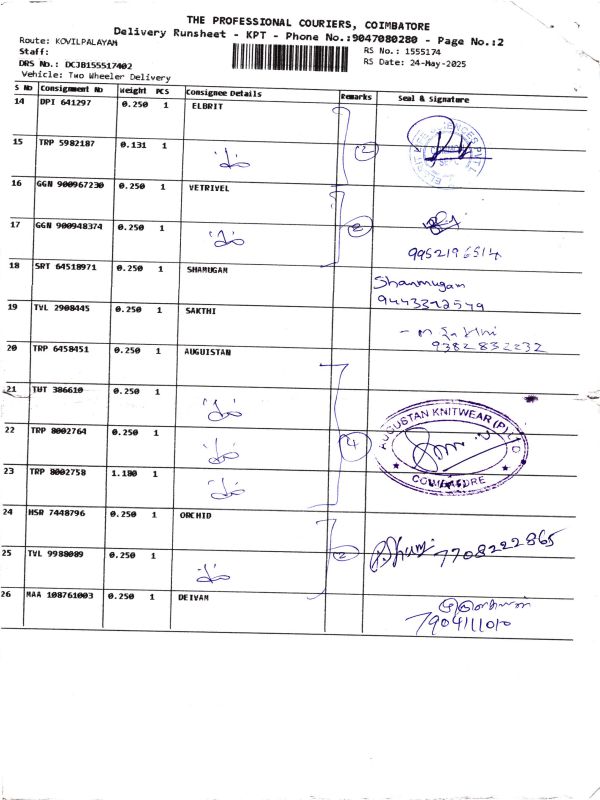 THE PROFESSIONAL COURIERS, COIMBATORE
Delivery Runsheet - KPT - Phone No.:9047080280 - Page No.:2
Route: KOVILPALAYAM
RS No.: 1555174
Staff:
RS Date: 24-May-2025
DRS No.: DCJB155517402
Vehicle: Two Wheeler Delivery
S No Consignment No Weight PCS Consignee Details Remarks Seal & Signature
14 DPI 641297 0.250 1 ELBRIT
15 TRP 5982187 0.131 1 2
16 GGN 900967230 0.250 1 VETRIVEL
17 GGN 900948374 0.250 1 2
9952196514
18 SRT 64518971 0.250 1 SHAMUGAM Shanmugam
9443372549
19 TVL 2908445 0.250 1 SAKTHI
9382832232
20 TRP 6458451 0.250 1 AUGUISTAN
21 TUT 386610 0.250 1
AUGUSTAN KNITWEAR (P) LTD
22 TRP 8002764 0.250 1 4
23 TRP 8002758 1.180 1
COIMBATORE
24 HSR 7448796 0.250 1 ORCHID
7708222865
25 TVL 9988089 0.250 1 2
26 MAA 108761003 0.250 1 DEIVAM
7904111010